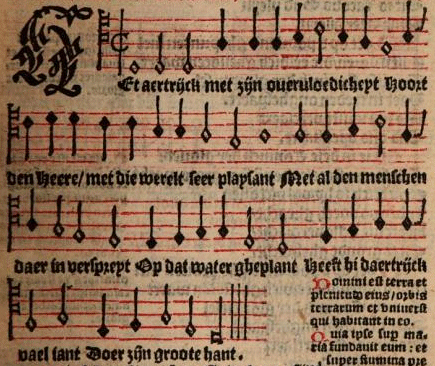 Et aertrijck met zijn ouervloedicheyt Hoort
den Heere/ met die werelt seer playsant Met al den menschen
daer in verspreyt Op dat water gheplant Heeft hi daertrijck
vael sant Doer zijn groote hant.
Domini est terra et
plenitudo eius/ orbis
terrarum et vniuersi
qui habitant in eo.
Quia ipse sup ma-
ria fundauit eum: et
super flumina pre